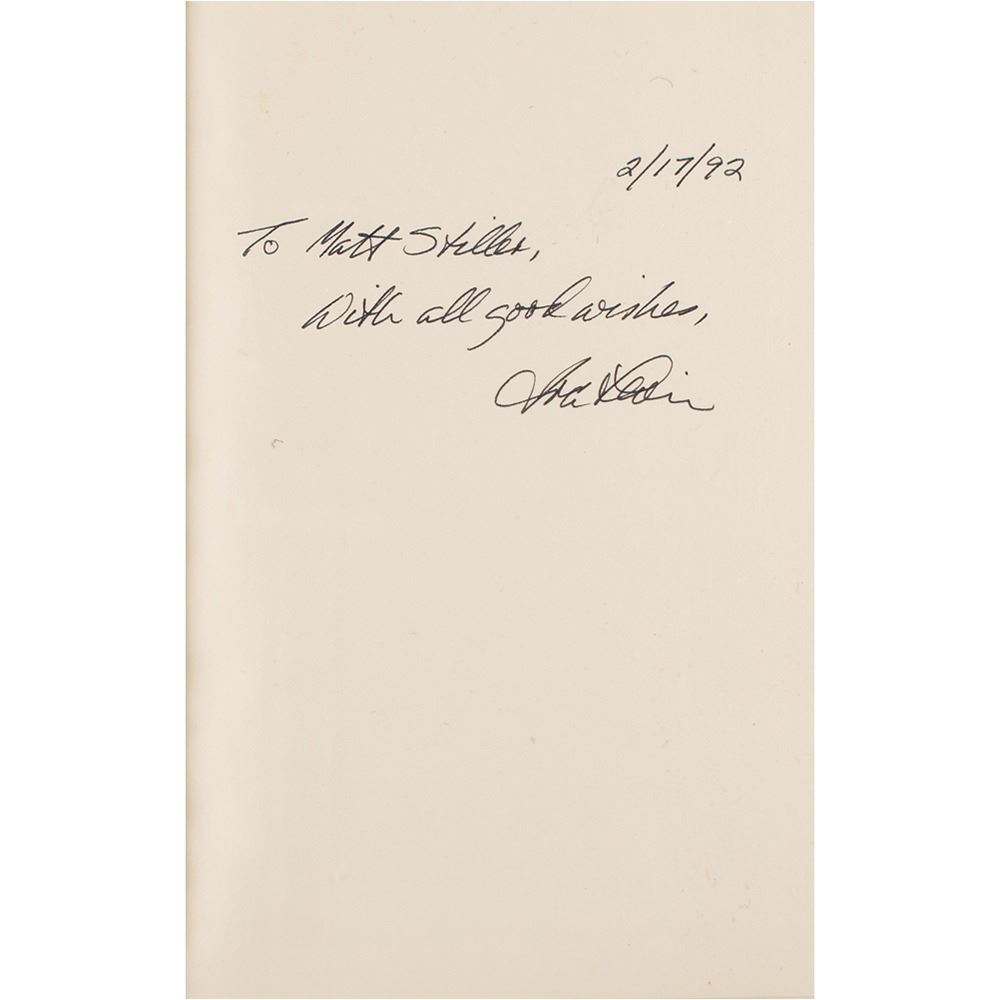 2/17/92
To Matt Stiller,
With all good wishes,
Ira Levin